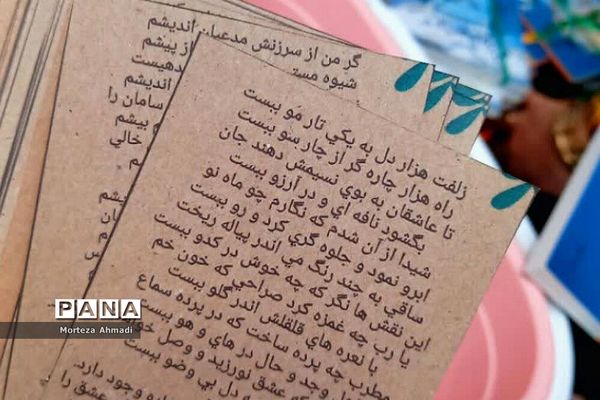 گر من از سرزنش مدعیان اندیشم
شیوه مستی
از پیشم
اندیشم
سامان را
بیشم
خالی
زلفت هزار دل به یکي تار مو ببست
راه هزار چاره گر از چار سو ببست
تا عاشقان به بوي نسیمش دهند جان
بگشود نافه اي و در آرزو ببست
شیدا از آن شدم که نگارم چو ماه نو
ابرو نمود و جلوه گري کرد و رو ببست
ساقي به چند رنگ مي اندر پیاله ریخت
این نقش ها نگر که چه خوش در کدو ببست
یا رب چه غمزه کرد صراحي که خون خم
با نعره هاي قلقلش اندر گلو ببست
مطرب چه پرده ساخت که در پرده سماع
وجد و حال در هاي و هو ببست
که عشق نورزید و وصل خو
دل بي وضو ببست
وجود دارد.
عشق را
PANA
Morteza Ahmadi